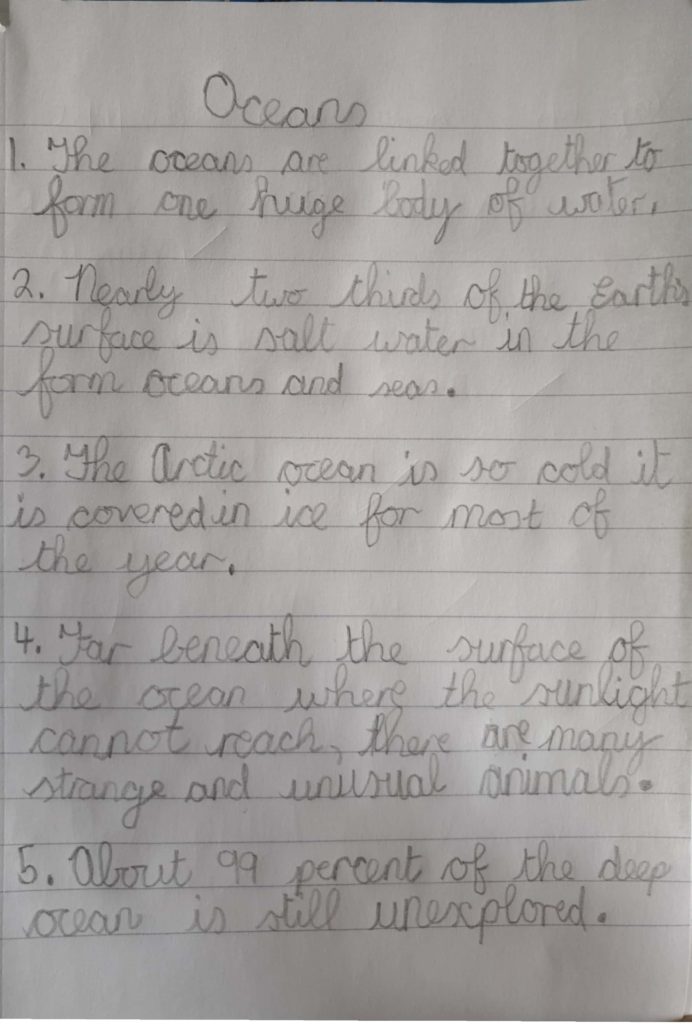 Oceans
1. The oceans are linked together to
form one huge body of water.
2. Nearly two thirds of the Earth's
surface is salt water in the
form oceans and seas.
3. The Arctic ocean is so cold it
is covered in ice for most of
the year.
4. Far beneath the surface of
the ocean where the sunlight
cannot reach, there are many
strange and unusual animals.
5. About 99 percent of the deep
ocean is still unexplored.